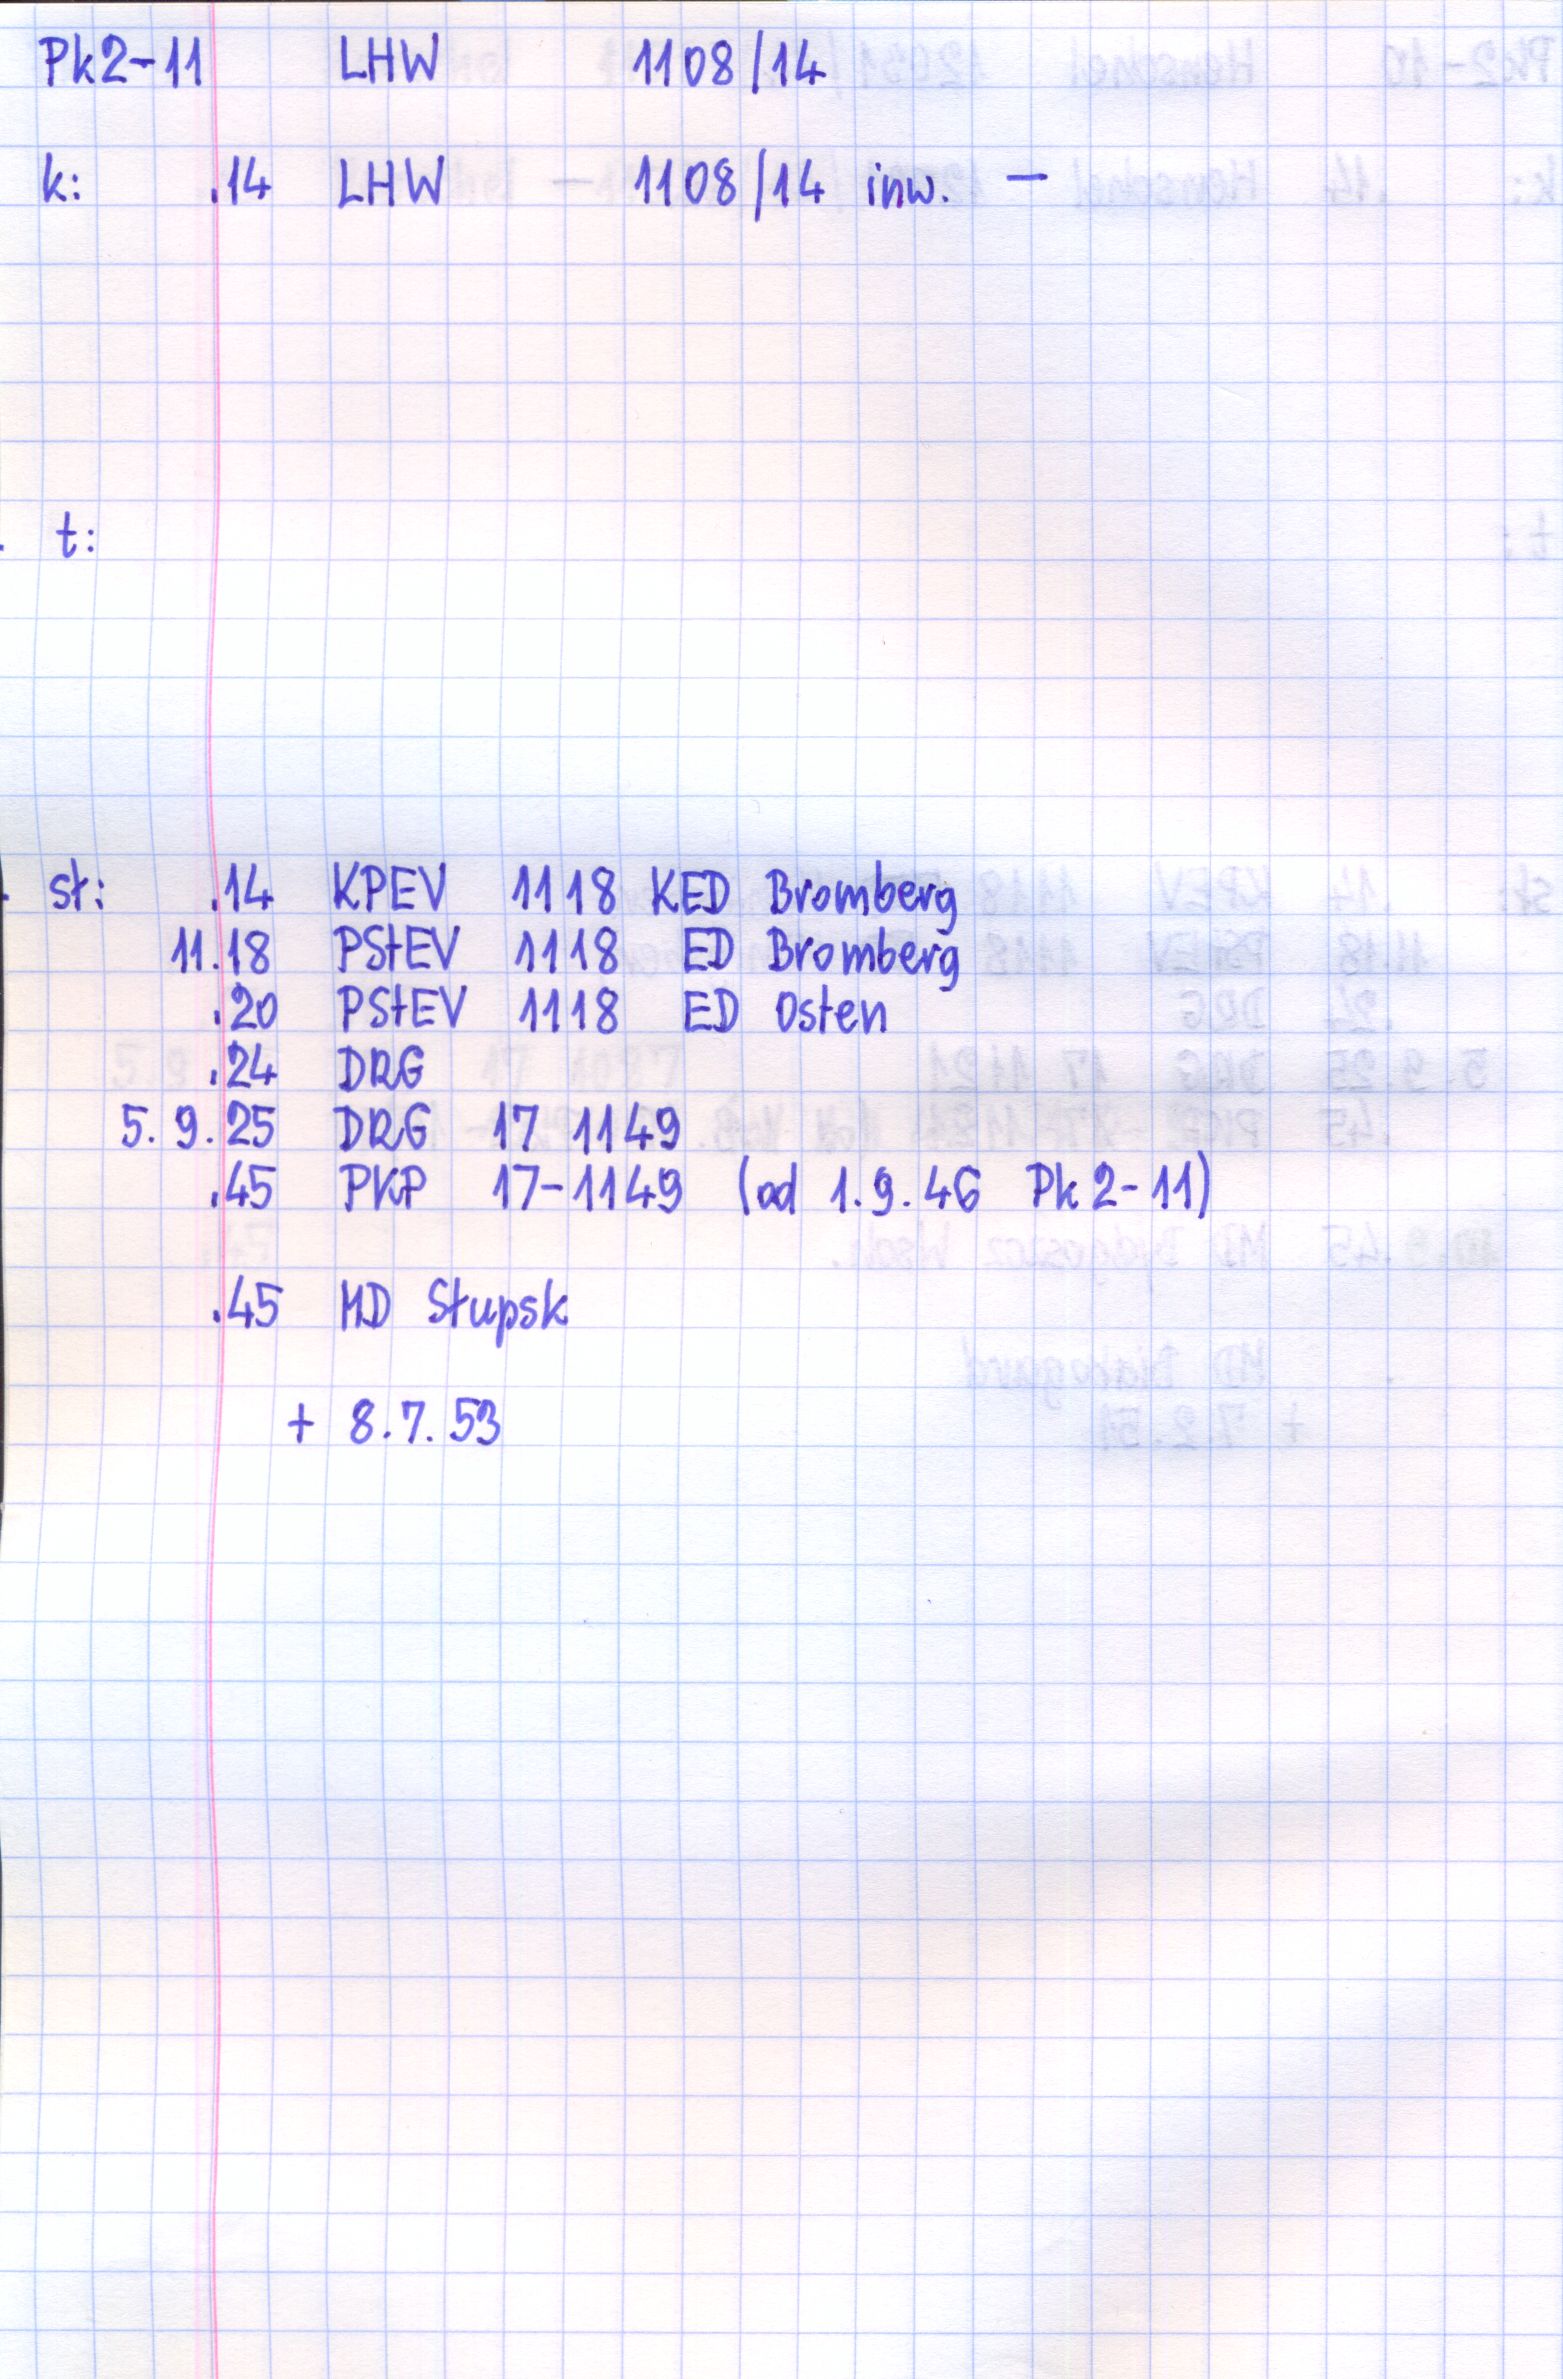 Pk2-11 LHW 1108/14
k: .14 LHW 1108/14 inw. —
t:
st: .14 KPEV 1118 KED Bromberg
11.18 PStEV 1118 ED Bromberg
.20 PStEV 1118 ED Osten
.24 DRG
5.9.25 DRG 17 1149
.45 PKP 17-1149 (od 1.9.46 Pk2-11)
.45 MD Słupsk
+ 8.7.53